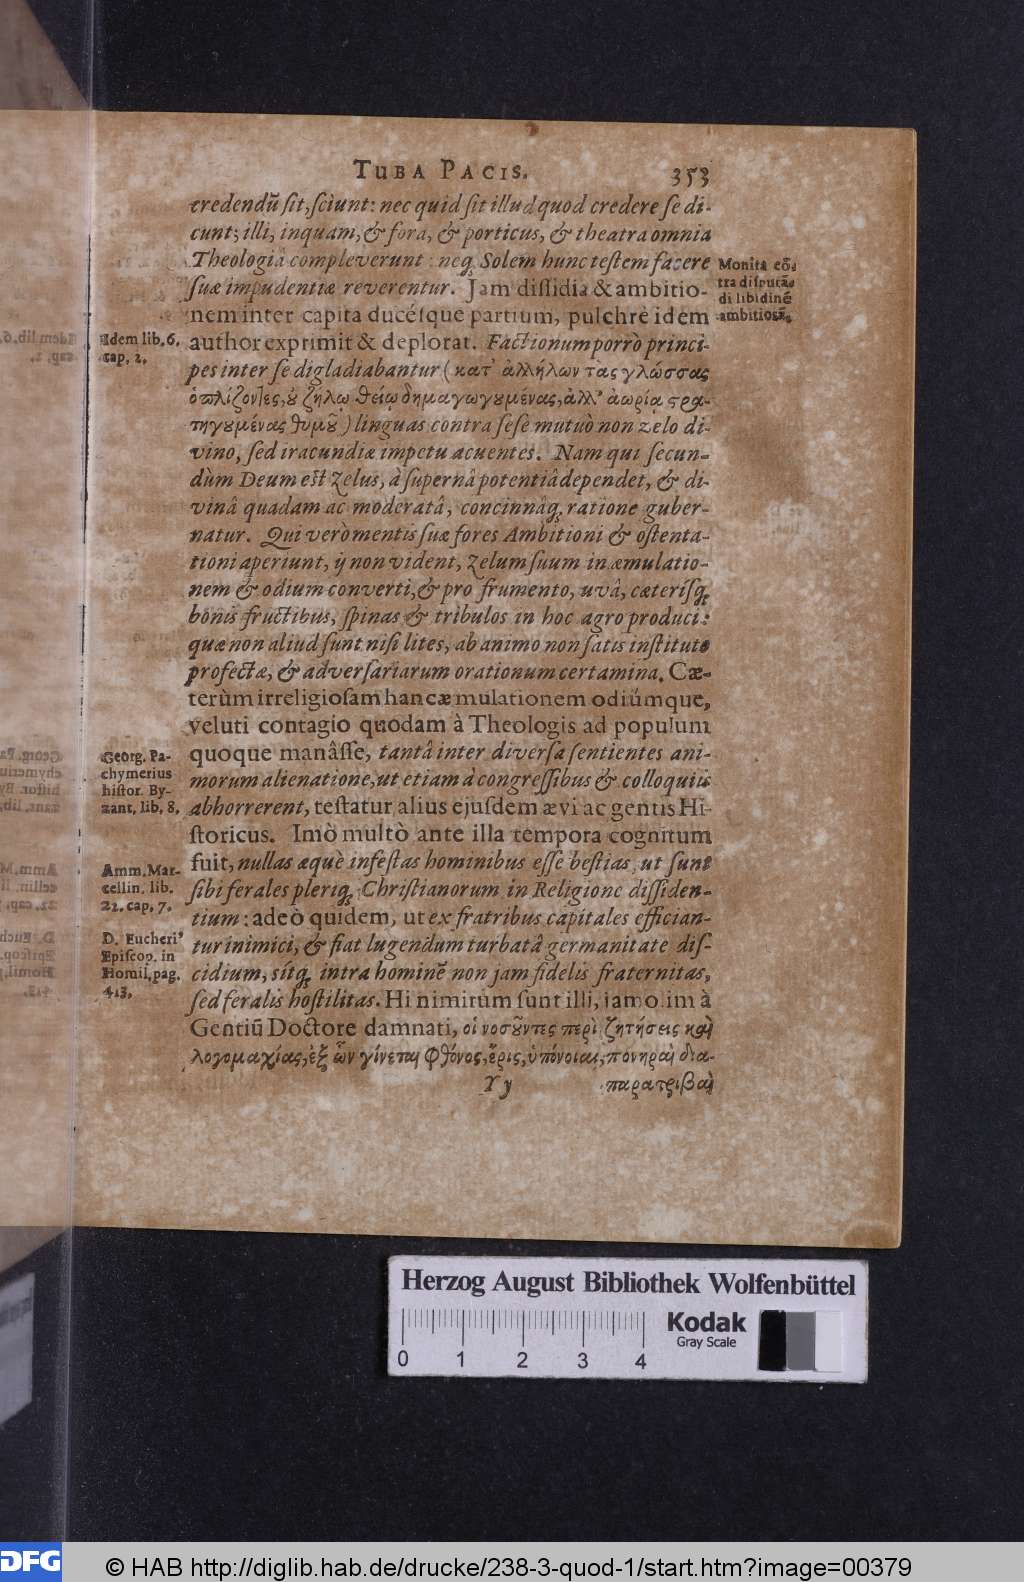 TUBA PACIS. 353
credendū sit, sciunt: nec quid sit illud quod credere se di-
cunt; illi, inquam, & fora, & porticus, & theatra omnia
Theologiâ compleverunt: neq; Solem hunc testem facere
suæ impudentiæ reverentur. Jam dissidia & ambitio-
nem inter capita ducésque partium, pulchrè idem
author exprimit & deplorat. Factionum porrò princi-
pes inter se digladiabantur (κατ' ἀλλήλων τὰς γλώσσας
ὁπλίζοντες, ȣ ζήλῳ θείῳ δημαγωγȣμένας, ἀλλ' ἀωρίᾳ στρα-
τηγȣμένας θυμȣ͂) linguas contra sese mutuò non zelo di-
vino, sed iracundiæ impetu acuentes. Nam qui secun-
dùm Deum est Zelus, à supernâ potentiâ dependet, & di-
vinâ quadam ac moderatâ, concinnâq; ratione guber-
natur. Qui verò mentis suæ fores Ambitioni & ostenta-
tioni aperiunt, ij non vident, Zelum suum in æmulatio-
nem & odium converti, & pro frumento, uvâ, cæterísq;
bonis fructibus, spinas & tribulos in hoc agro produci:
quæ non aliud sunt nisi lites, ab animo non satis instituto
profectæ, & adversariarum orationum certamina. Cæ-
terùm irreligiosam hanc æmulationem odiúmque,
veluti contagio quodam à Theologis ad populum
quoque manâsse, tantâ inter diversa sentientes ani-
morum alienatione, ut etiam à congressibus & colloquiis
abhorrerent, testatur alius ejusdem ævi ac gentis Hi-
storicus. Imò multò ante illa tempora cognitum
fuit, nullas æquè infestas hominibus esse bestias, ut sunt
sibi ferales pleriq; Christianorum in Religione dissiden-
tium: adeò quidem, ut ex fratribus capitales effician-
tur inimici, & fiat lugendum turbatâ germanitate dis-
cidium, sítq; intra hominē non jam fidelis fraternitas,
sed feralis hostilitas. Hi nimirum sunt illi, jam olim à
Gentiū Doctore damnati, οἱ νοσȣ͂ντες περὶ ζητήσεις καὶ
λογομαχίας, ἐξ ὧν γίνεται φθόνος, ἔρις, ὑπόνοιαι, πονηραὶ δια-
Yy παρατριβαὶ
Monita cō-
tra disputā-
di libidinē
ambitiosā.
Idem lib. 6.
cap. 2.
Georg. Pa-
chymerius
histor. By-
zant. lib. 8.
Amm. Mar-
cellin. lib.
22. cap. 7.
D. Eucheri'
Episcop. in
Homil. pag.
413.
Herzog August Bibliothek Wolfenbüttel
Kodak
Gray Scale
0 1 2 3 4
DFG © HAB http://diglib.hab.de/drucke/238-3-quod-1/start.htm?image=00379